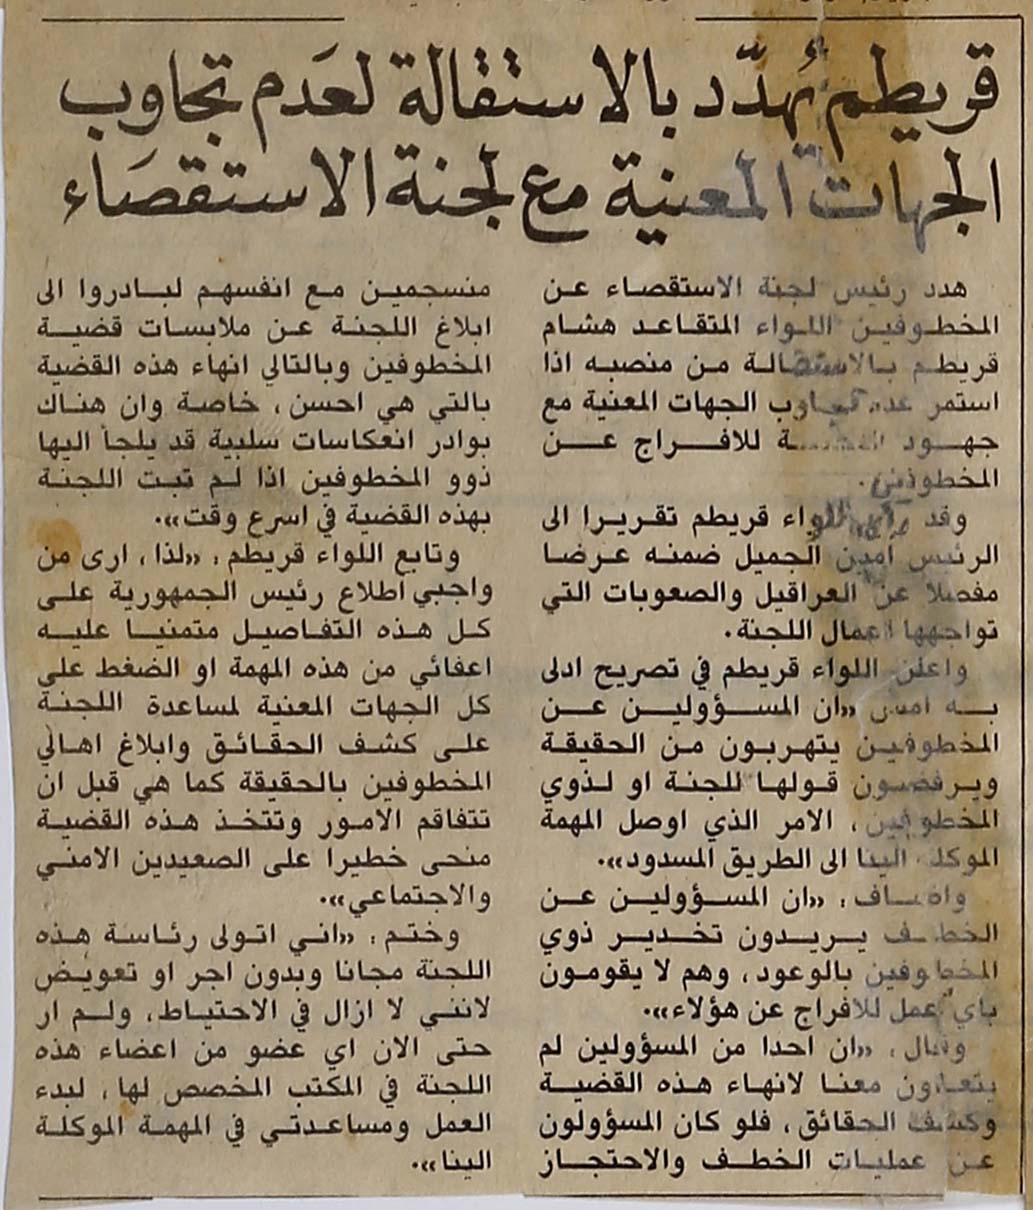 قريطم يُهدّد بالاستقالة لعَدم تجاوب
الجهات المعنية مع لجنة الاستقصَاء
هدد رئيس لجنة الاستقصاء عن
المخطوفين اللواء المتقاعد هشام
قريطم بالاستقالة من منصبه اذا
استمر عدم تجاوب الجهات المعنية مع
جهود اللجنة للافراج عن
المخطوفين.
وقد اللواء قريطم تقريرا الى
الرئيس امين الجميل ضمنه عرضا
مفصلا عن العراقيل والصعوبات التي
تواجهها اعمال اللجنة.
واعلن اللواء قريطم في تصريح ادلى
به امس «ان المسؤولين عن
المخطوفين يتهربون من الحقيقة
ويرفضون قولها للجنة او لذوي
المخطوفين، الامر الذي اوصل المهمة
الموكلة الينا الى الطريق المسدود».
واضاف، «ان المسؤولين عن
الخطف يريدون تخدير ذوي
المخطوفين بالوعود، وهم لا يقومون
باي عمل للافراج عن هؤلاء».
وقال، «ان احدا من المسؤولين لم
يتعاون معنا لانهاء هذه القضية
وكشف الحقائق، فلو كان المسؤولون
عن عمليات الخطف والاحتجاز
منسجمين مع انفسهم لبادروا الى
ابلاغ اللجنة عن ملابسات قضية
المخطوفين وبالتالي انهاء هذه القضية
بالتي هي احسن، خاصة وان هناك
بوادر انعكاسات سلبية قد يلجأ اليها
ذوو المخطوفين اذا لم تبت اللجنة
بهذه القضية في اسرع وقت».
وتابع اللواء قريطم، «لذا، ارى من
واجبي اطلاع رئيس الجمهورية على
كل هذه التفاصيل متمنيا عليه
اعفائي من هذه المهمة او الضغط على
كل الجهات المعنية لمساعدة اللجنة
على كشف الحقائق وابلاغ اهالي
المخطوفين بالحقيقة كما هي قبل ان
تتفاقم الامور وتتخذ هذه القضية
منحى خطيرا على الصعيدين الامني
والاجتماعي».
وختم، «اني اتولى رئاسة هذه
اللجنة مجانا وبدون اجر او تعويض
لانني لا ازال في الاحتياط، ولم ار
حتى الان اي عضو من اعضاء هذه
اللجنة في المكتب المخصص لها، لبدء
العمل ومساعدتي في المهمة الموكلة
الينا».